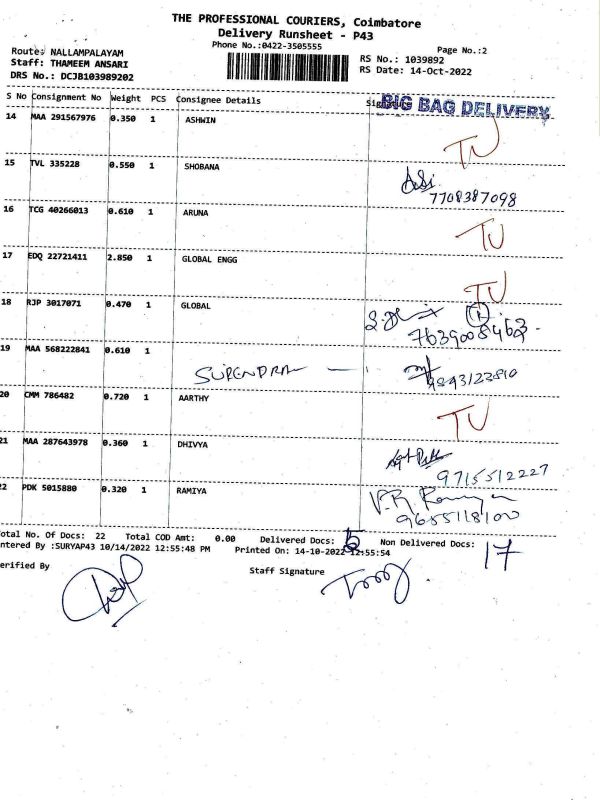 THE PROFESSIONAL COURIERS, Coimbatore
Delivery Runsheet - P43
Phone No.:0422-3505555
Page No.:2
Route: NALLAMPALAYAM
RS No.: 1039892
Staff: THAMEEM ANSARI
RS Date: 14-Oct-2022
DRS No.: DCJB103989202
S No Consignment No Weight PCS Consignee Details Signature
BIG BAG DELIVERY
14 MAA 291567976 0.350 1 ASHWIN
TU
15 TVL 335228 0.550 1 SHOBANA
7708387098
16 TCG 40266013 0.610 1 ARUNA
TU
17 EDQ 22721411 2.850 1 GLOBAL ENGG
TU
18 RJP 3017071 0.470 1 GLOBAL
7639008463
19 MAA 568222841 0.610 1
SURENDRA
20 CMM 786482 0.720 1 AARTHY
TU
21 MAA 287643978 0.360 1 DHIVYA
9715512227
22 PDK 5015880 0.320 1 RAMIYA
V.R. Ramya
9655118100
Total No. Of Docs: 22 Total COD Amt: 0.00 Delivered Docs: 5 Non Delivered Docs: 17
ntered By :SURYAP43 10/14/2022 12:55:48 PM Printed On: 14-10-2022 12:55:54
erified By
Staff Signature